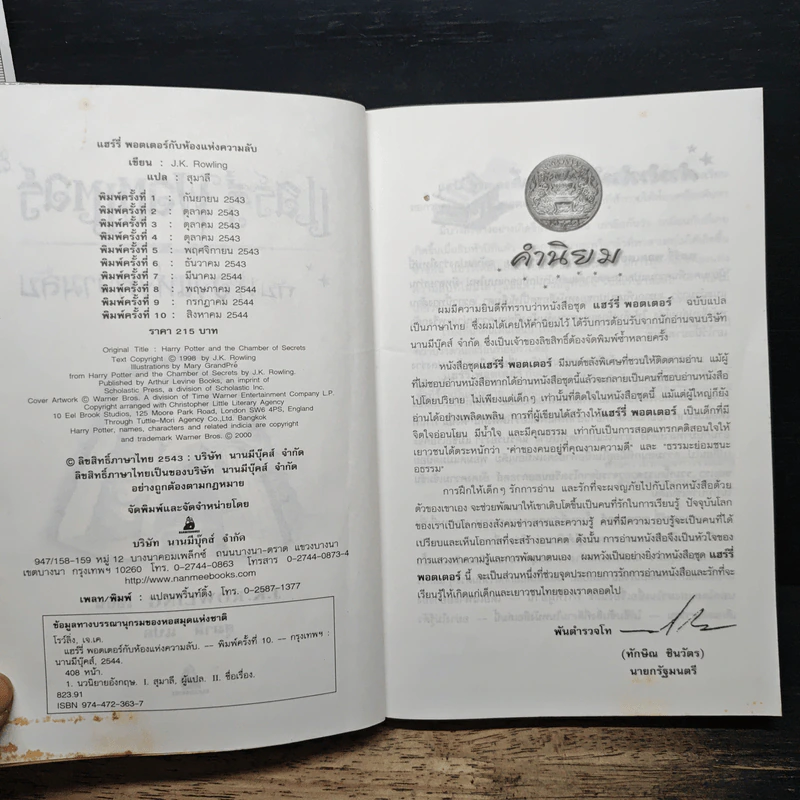 แฮร์รี่ พอตเตอร์กับห้องแห่งความลับ
เขียน : J.K. Rowling
แปล : สุมาลี
พิมพ์ครั้งที่ 1 : กันยายน 2543
พิมพ์ครั้งที่ 2 : ตุลาคม 2543
พิมพ์ครั้งที่ 3 : ตุลาคม 2543
พิมพ์ครั้งที่ 4 : ตุลาคม 2543
พิมพ์ครั้งที่ 5 : พฤศจิกายน 2543
พิมพ์ครั้งที่ 6 : ธันวาคม 2543
พิมพ์ครั้งที่ 7 : มีนาคม 2544
พิมพ์ครั้งที่ 8 : พฤษภาคม 2544
พิมพ์ครั้งที่ 9 : กรกฎาคม 2544
พิมพ์ครั้งที่ 10 : สิงหาคม 2544
ราคา 215 บาท
Original Title : Harry Potter and the Chamber of Secrets
Text Copyright © 1998 by J.K. Rowling
Illustrations by Mary GrandPré
from Harry Potter and the Chamber of Secrets by J.K. Rowling.
Published by Arthur Levine Books, an imprint of
Scholastic Press, a division of Scholastic Inc.
Cover Artwork © Warner Bros. A division of Time Warner Entertainment Company L.P.
Copyright arranged with Christopher Little Literary Agency
10 Eel Brook Studios, 125 Moore Park Road, London SW6 4PS, England
Through Tuttle-Mori Agency Co.,Ltd. Bangkok
Harry Potter, names, characters and related indicia are copyright
and trademark Warner Bros. © 2000
© ลิขสิทธิ์ภาษาไทย 2543 : บริษัท นานมีบุ๊คส์ จำกัด
ลิขสิทธิ์ภาษาไทยเป็นของบริษัท นานมีบุ๊คส์ จำกัด
อย่างถูกต้องตามกฎหมาย
จัดพิมพ์และจัดจำหน่ายโดย
บริษัท นานมีบุ๊คส์ จำกัด
947/158-159 หมู่ 12 บางนาคอมเพล็กซ์ ถนนบางนา-ตราด แขวงบางนา
เขตบางนา กรุงเทพฯ 10260 โทร. 0-2744-0863 โทรสาร 0-2744-0873-4
http://www.nanmeebooks.com
เพลท/พิมพ์ : แปลนพริ้นท์ติ้ง โทร. 0-2587-1377
ข้อมูลทางบรรณานุกรมของหอสมุดแห่งชาติ
โรว์ลิ่ง, เจ.เค.
แฮร์รี่ พอตเตอร์กับห้องแห่งความลับ. -- พิมพ์ครั้งที่ 10. -- กรุงเทพฯ :
นานมีบุ๊คส์, 2544.
408 หน้า.
1. นวนิยายอังกฤษ. I. สุมาลี, ผู้แปล. II. ชื่อเรื่อง.
823.91
ISBN 974-472-363-7
คำนิยม
ผมมีความยินดีที่ทราบว่าหนังสือชุด แฮร์รี่ พอตเตอร์ ฉบับแปล
เป็นภาษาไทย ซึ่งผมได้เคยให้คำนิยมไว้ ได้รับการต้อนรับจากนักอ่านจนบริษัท
นานมีบุ๊คส์ จำกัด ซึ่งเป็นเจ้าของลิขสิทธิ์ต้องจัดพิมพ์ซ้ำหลายครั้ง
หนังสือชุดแฮร์รี่ พอตเตอร์ มีมนต์ขลังพิเศษที่ชวนให้ติดตามอ่าน แม้ผู้
ที่ไม่ชอบอ่านหนังสือหากได้อ่านหนังสือชุดนี้แล้วจะกลายเป็นคนที่ชอบอ่านหนังสือ
ไปโดยปริยาย ไม่เพียงแต่เด็กๆ เท่านั้นที่ติดใจในหนังสือชุดนี้ แม้แต่ผู้ใหญ่ก็ยัง
อ่านได้อย่างเพลิดเพลิน การที่ผู้เขียนได้สร้างให้แฮร์รี่ พอตเตอร์ เป็นเด็กที่มี
จิตใจอ่อนโยน มีน้ำใจ และมีคุณธรรม เท่ากับเป็นการสอดแทรกคติสอนใจให้
เยาวชนได้ตระหนักว่า "ค่าของคนอยู่ที่คุณงามความดี" และ "ธรรมะย่อมชนะ
อธรรม"
การฝึกให้เด็กๆ รักการอ่าน และรักที่จะผจญภัยไปกับโลกหนังสือด้วย
ตัวของเขาเอง จะช่วยพัฒนาให้เขาเติบโตขึ้นเป็นคนที่รักในการเรียนรู้ ปัจจุบันโลก
ของเราเป็นโลกของสังคมข่าวสารและความรู้ คนที่มีความรอบรู้จะเป็นคนที่ได้
เปรียบและเห็นโอกาสที่จะสร้างอนาคต ดังนั้น การอ่านหนังสือจึงเป็นหัวใจของ
การแสวงหาความรู้และการพัฒนาตนเอง ผมหวังเป็นอย่างยิ่งว่าหนังสือชุด แฮร์รี่
พอตเตอร์ นี้ จะเป็นส่วนหนึ่งที่ช่วยจุดประกายการรักการอ่านหนังสือและรักที่จะ
เรียนรู้ให้เกิดแก่เด็กและเยาวชนไทยของเราตลอดไป
พันตำรวจโท
(ทักษิณ ชินวัตร)
นายกรัฐมนตรี